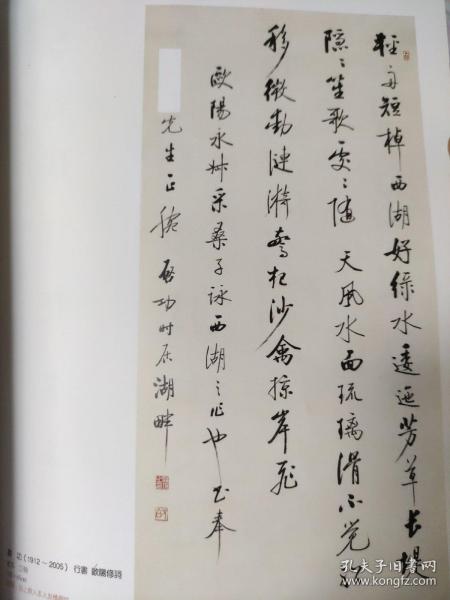 輕舟短棹西湖好綠水逶迤芳草長堤
隱〻笙歌處〻隨 无風水面琉璃滑不覺船
移微動漣漪驚起沙禽掠岸飛
歐陽永叔采桑子詠西湖之作也書奉
先生正 啓功時居湖畔
功（1912～2005） 行書 歐陽修詞
孔夫子旧书网